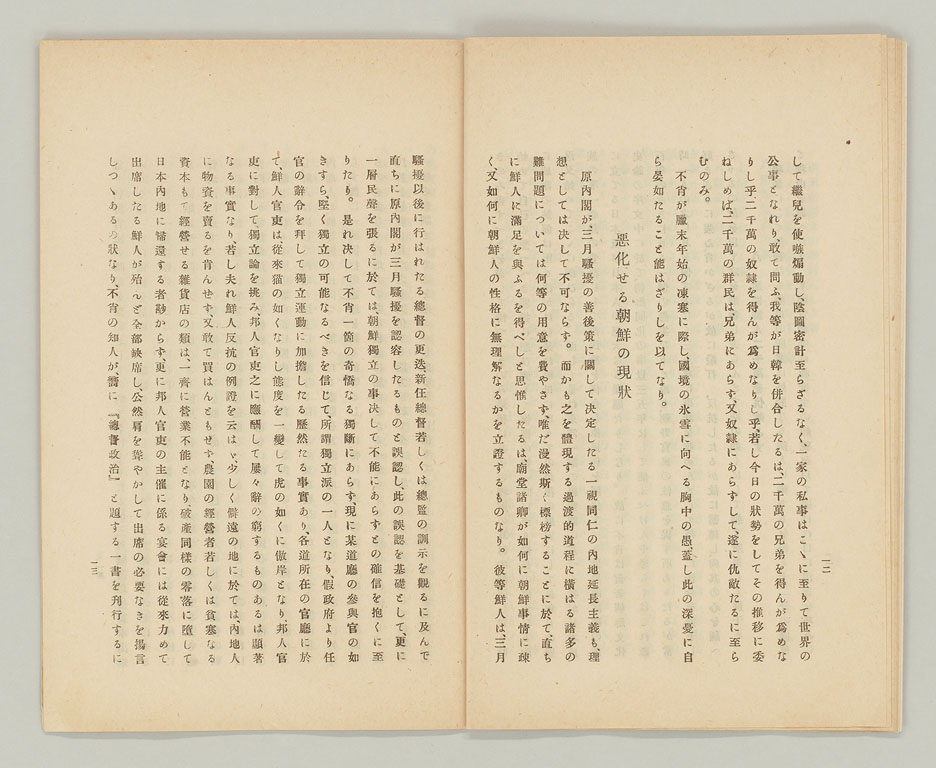 して繼兒を使嗾煽動し、陰圖密計至らざるなく、一家の私事はこゝに至りて世界の
公事となれり、敢て問ふ、我等が日韓を併合したるは、二千萬の兄弟を得んが爲めな
りし乎二千萬の奴隷を得んが爲めなりし乎、若し今日の狀勢をしてその推移に委
ねしめば、二千萬の群民は、兄弟にあらず、又奴隷にあらずして、遂に仇敵たるに至ら
むのみ。
不肖が臘末年始の凍塞に際し、國境の氷雪に向へる胸中の愚蓋し此の深憂に自
ら晏如たること能はざりしを以てなり。
惡化せる朝鮮の現狀
原內閣が、三月騷擾の善後策に關して決定したる一視同仁の內地延長主義も、理
想としては決して不可ならす。而かも之を體現する過渡的道程に橫はる諸多の
難問題については何等の用意を費やさず、唯だ漫然斯く標榜することに於て、直ち
に鮮人に滿足を與ふるを得べしと思惟したるは、廟堂諸卿が如何に朝鮮事情に疎
く、又如何に朝鮮人の性格に無理解なるかを立證するものなり。彼等鮮人は、三月
一二
騷擾以後に行はれたる總督の更迭、新任總督若しくは總監の訓示を觀るに及んで
直ちに原內閣が三月騷擾を認容したるものと誤認し、此の誤認を基礎として、更に
一層民聲を張るに於ては、朝鮮獨立の事決して不能にあらずとの確信を抱くに至
りたり。是れ決して不肖一箇の奇矯なる獨斷にあらす、現に某道廳の參與官の如
きすら、堅く獨立の可能なるべきを信じて、所謂獨立派の一人となり、假政府より任
官の辭令を拜して獨立運動に加擔したる歷然たる事實あり、各道所在の官廳に於
て、鮮人官吏は、從來猫の如くなりし態度を一變して虎の如くに傲岸となり、邦人官
吏に對して獨立論を挑み、邦人官吏之に應酬して屢々辭の窮するものあるは顯著
なる事實なり、若し夫れ鮮人反抗の例證を云はゞ、少しく僻遠の地に於ては、內地人
に物資を賣るを肯んせず、又敢て買はんともせず、農園の經營者若しくは貧塞なる
資本もて經營せる雜貨店の類は、一齊に營業不能となり、破產同樣の零落に墮して
日本內地に歸還する者尠からず、更に邦人官吏の主催に係る宴會には從來力めて
出席したる鮮人が殆んど全部缺席し、公然肩を聳やかして出席の必要なきを揚言
しつゝあるの狀なり、不肖の知人が、嚮に『總督政治』と題する一書を刊行するに
一三